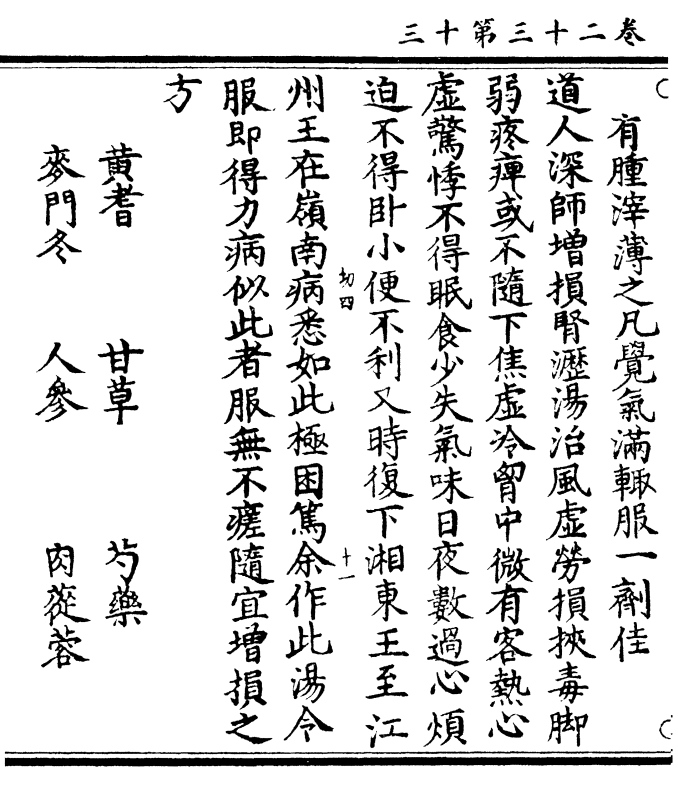 卷二十三第十三
有腫滓薄之凡覺氣滿輙服一劑佳
道人深師增損腎瀝湯治風虛勞損挾毒脚
弱疼痺或不隨下焦虛冷胷中微有客熱心
虛驚悸不得眠食少失氣味日夜數過心煩
迫不得卧小便不利又時復下湘東王至江
州王在嶺南病悉如此極困篤余作此湯令
服即得力病似此者服無不瘥隨宜增損之
方
黄耆 甘草 芍藥
麥門冬 人參 肉蓯蓉